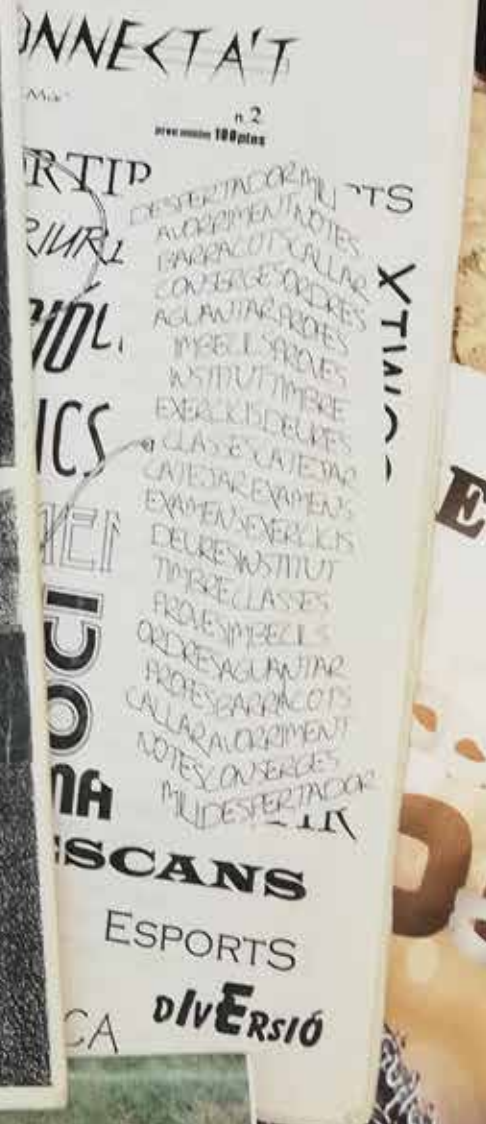 ONNECTA'T
n. 2
preu mínim 100 ptes
DESPERTADORMILI
AVORRIMENTNOTES
BARRACOTSCALLAR
CONSERGESORDRES
AGUANTARPROFES
IMBECILSPROVES
INSTITUTTIMBRE
EXERCICISDEURES
CLASSESCATEJAR
CATEJAREXAMENS
EXAMENSEXERCICIS
DEURESINSTITUT
TIMBRECLASSES
PROVESIMBECILS
ORDRESAGUANTAR
PROFESBARRACOTS
CALLARAVORRIMENT
NOTESCONSERGES
MILIDESPERTADOR
RTIR
RTS
ICS
OCI
MA
SCANS
ESPORTS
DIVERSIÓ
CA
E